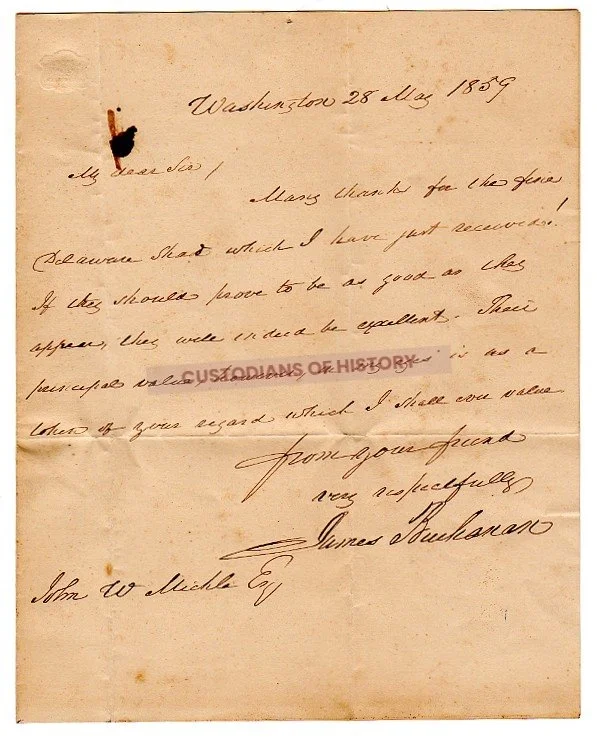 Washington 28 May 1859
My dear Sir,
Many thanks for the fine
Delaware Shad which I have just received!
If they should prove to be as good as they
appear, they will indeed be excellent. Their
principal value, however, in my eyes is as a
token of your regard which I shall ever value
CUSTODIANS OF HISTORY
from your friend
very respectfully
James Buchanan
John W Mickle Esq